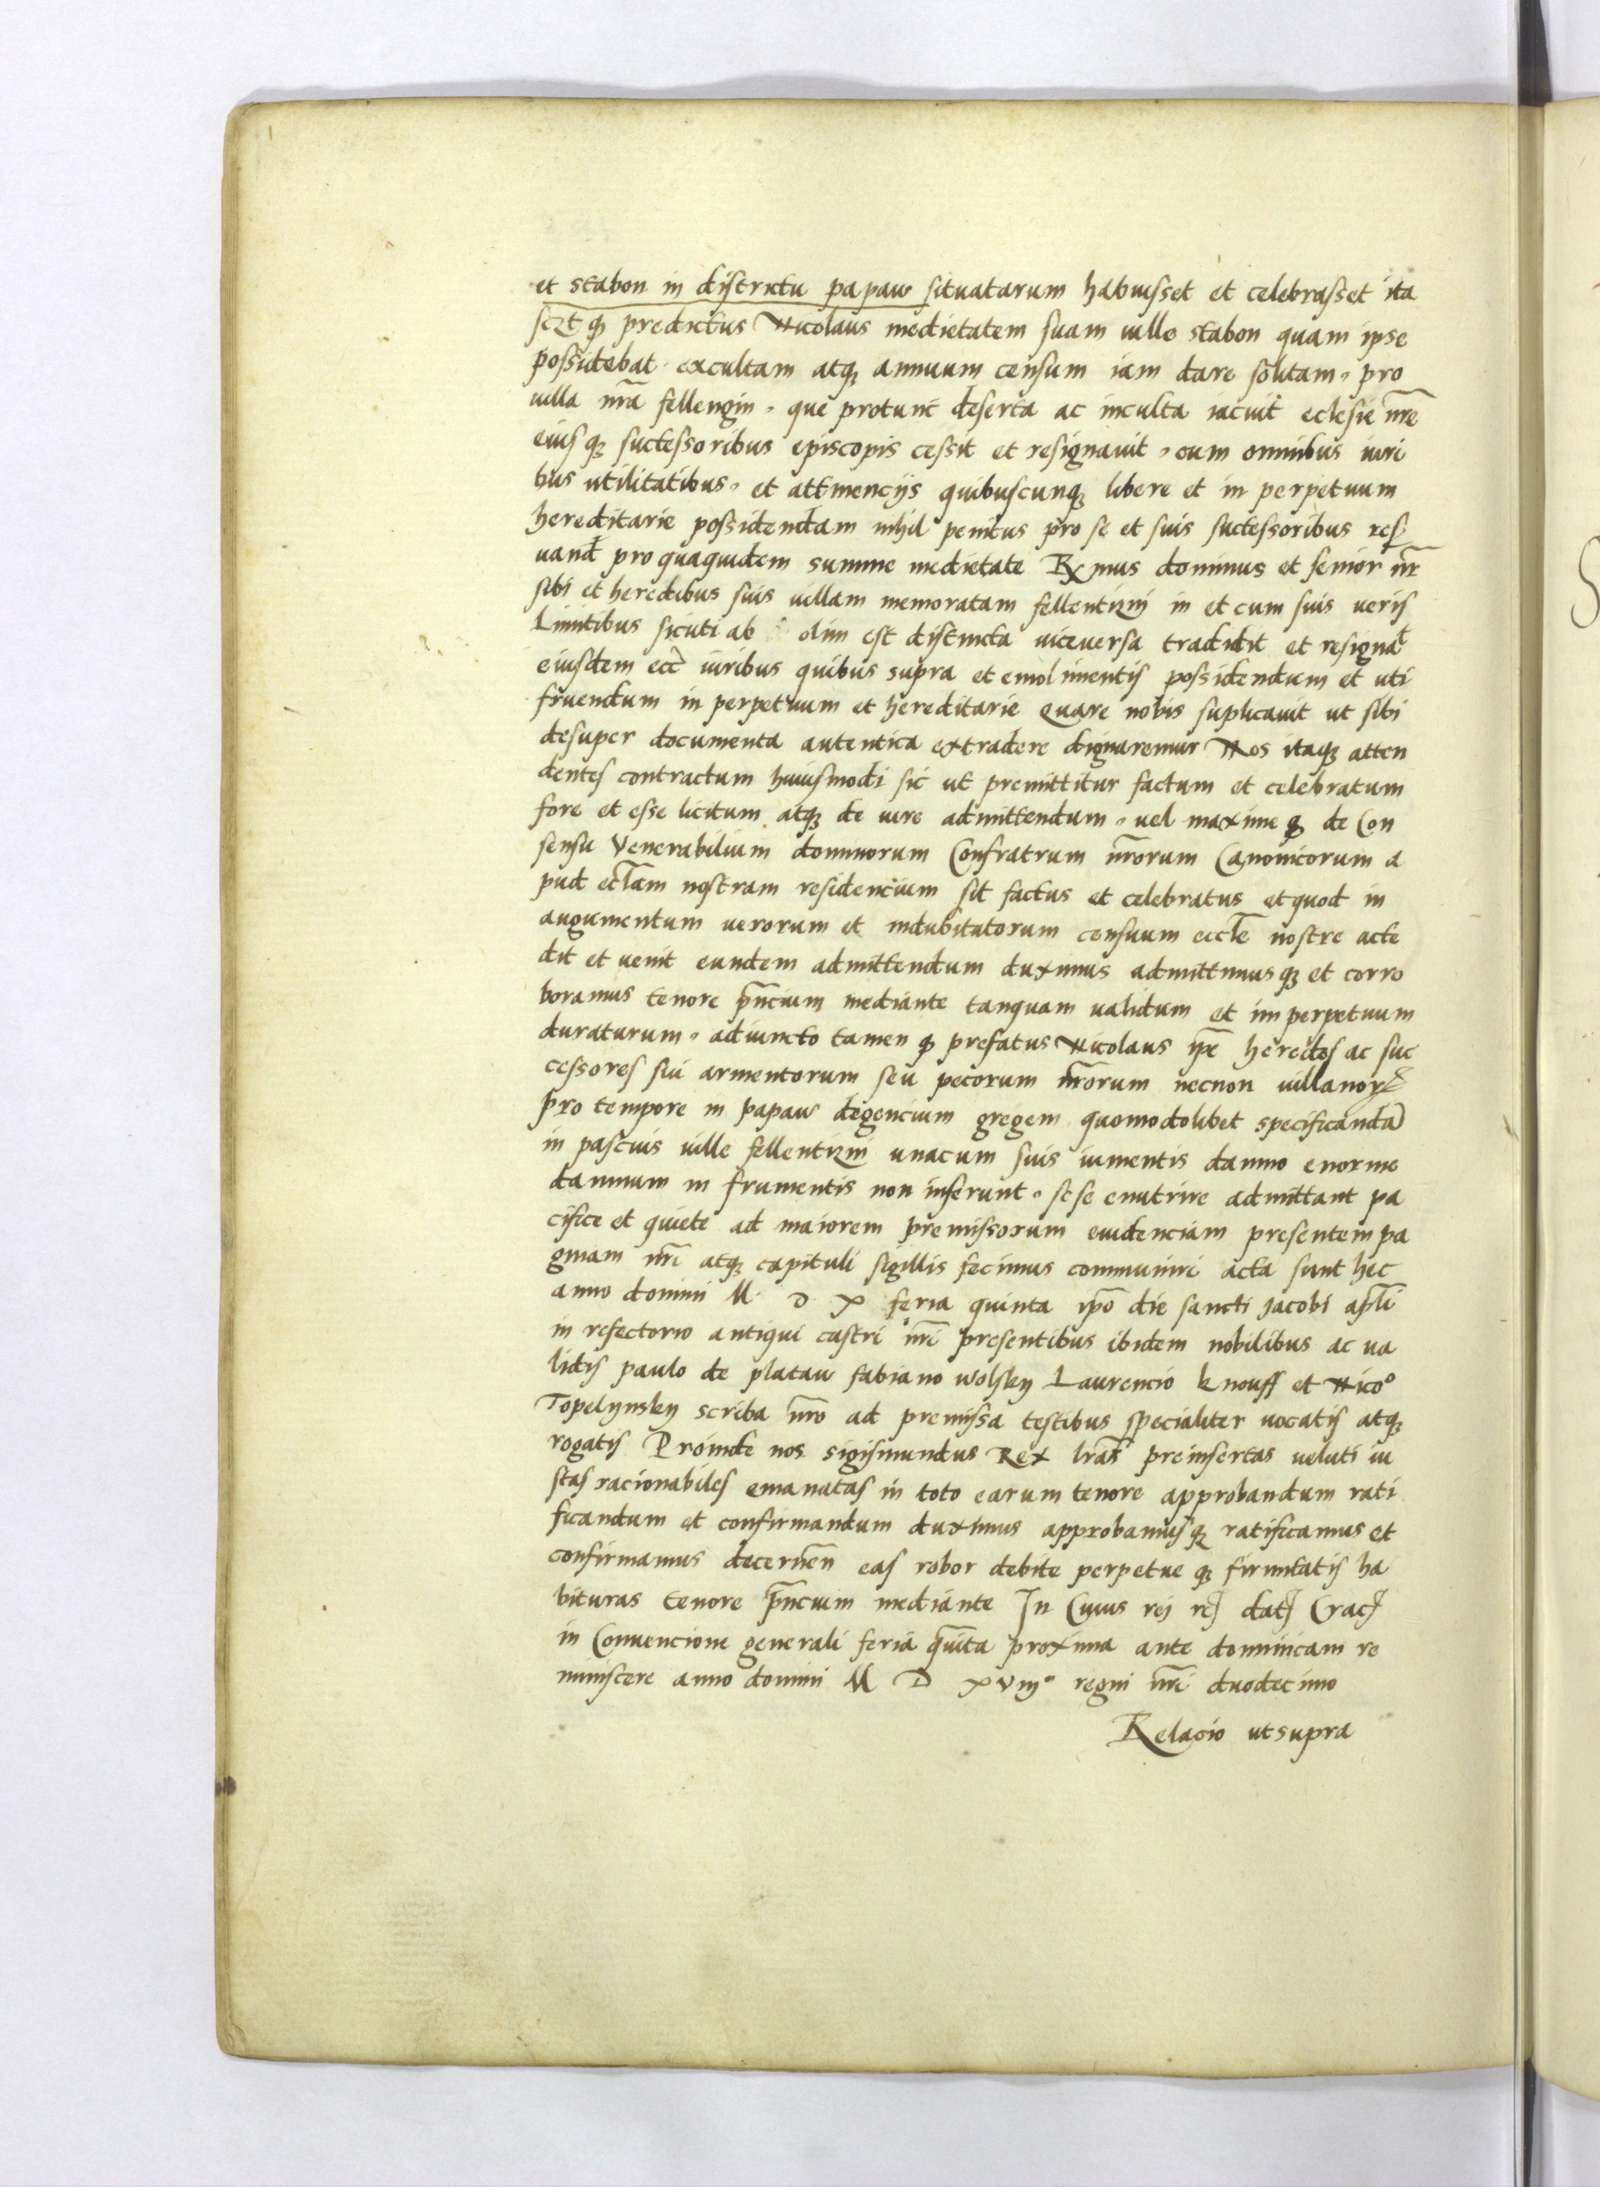 et stabon in districtu papaw situatarum habuisset et celebrasset ita
sczt qz predictus Nicolaus medietatem suam ville stabon quam ipse
possidebat excultam atqz annuum censum iam dare solitam, pro
villa nra fellengin, que protunc deserta ac inculta iacuit eclesie nre
eiusqz successoribus episcopis cessit et resignavit, cum omnibus iuri
bus utilitatibus, et attinencijs quibuscunqz libere et in perpetuum
hereditarie possidendam nihil penitus pro se et suis successoribus res
uand pro quaquidem summe medietate Rx mus dominus et senior nr
sibi et heredibus suis villam memoratam fellentizin in et cum suis veris
Limitibus sicuti ab olim est distincta viceversa tradidit et resignat
eiusdem ecc iuribus quibus supra et emolimentis possidendum et uti
fruendum in perpetuum et hereditarie Quare nobis suplicauit ut sibi
desuper documenta autentica extradere dignaremur Nos itaqz atten
dentes contractum huiusmodi sic ut premittitur factum et celebratum
fore et esse licitum atqz de iure admittendum, vel maxime q de Con
sensu Venerabilium dominorum Confratrum nrorum Canonicorum a
pud ecclam nostram residencium sit factus et celebratus et quod in
augumentum verorum et indubitatorum censuum eccle nostre acce
dit et venit eundem admittendum duximus admittimusqz et corro
boramus tenore pncium mediante tanquam validum et im perpetuum
duraturum, adiuncto tamen q prefatus Nicolaus ipe heredes ac suc
cessores sui armentorum seu pecorum nrorum necnon villanor
pro tempore in papaw degencium gregem quomodolibet specificanda
in pascuis ville fellentizin unacum suis iumentis damno enorme
damnum in frumentis non inferunt, sese enutrire admittant pa
cifice et quiete ad maiorem premissorum evidenciam presentem pa
ginam nri atqz capituli sigillis fecimus communiri acta sunt hec
anno domini M D X feria quinta ipo die sancti Jacobi apli
in refectorio antiqui castri nri presentibus ibidem nobilibus ac va
lidis paulo de platau fabiano wolsky Laurencio knouff et Nico°
Topelynsky scriba nro ad premissa testibus specialiter vocatis atqz
rogatis Proinde nos sigismundus Rex lras preinsertas veluti iu
stas racionabiles emanatas in toto earum tenore approbandum rati
ficandum et confirmandum duximus approbamusqz ratificamus et
confirmamus decernen eas robor debite perpetue qz firmitatis ha
bituras tenore pncium mediante In Cuius rei re dat Crac
in Convencione generali feria quita proxima ante dominicam re
miniscere anno domini M D xviij° regni nri duodecimo
Relacio ut supra